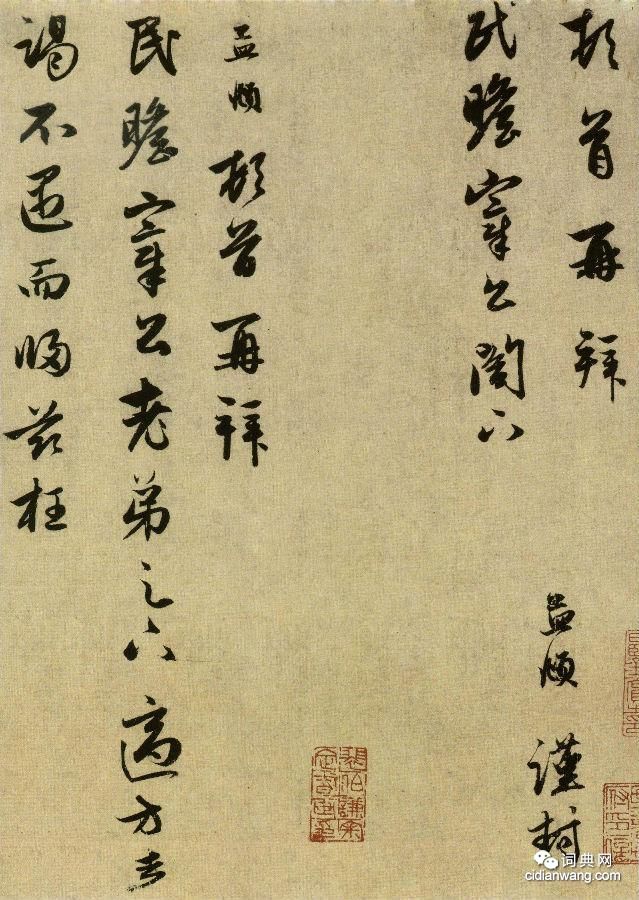 頓首再拜
民瞻宰公閣下
孟頫 謹封
孟頫頓首再拜
民瞻宰公老弟足下適方去
謁不遇而歸茲枉
词典网
cidianwang.com